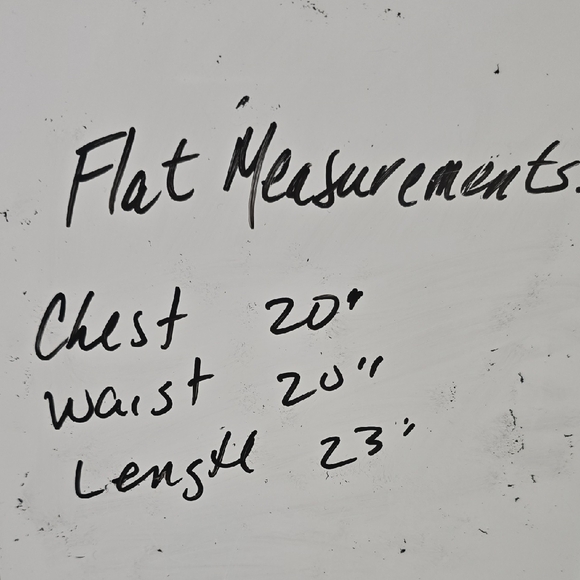 Flat Measurements.
Chest 20"
Waist 20"
Length 23"